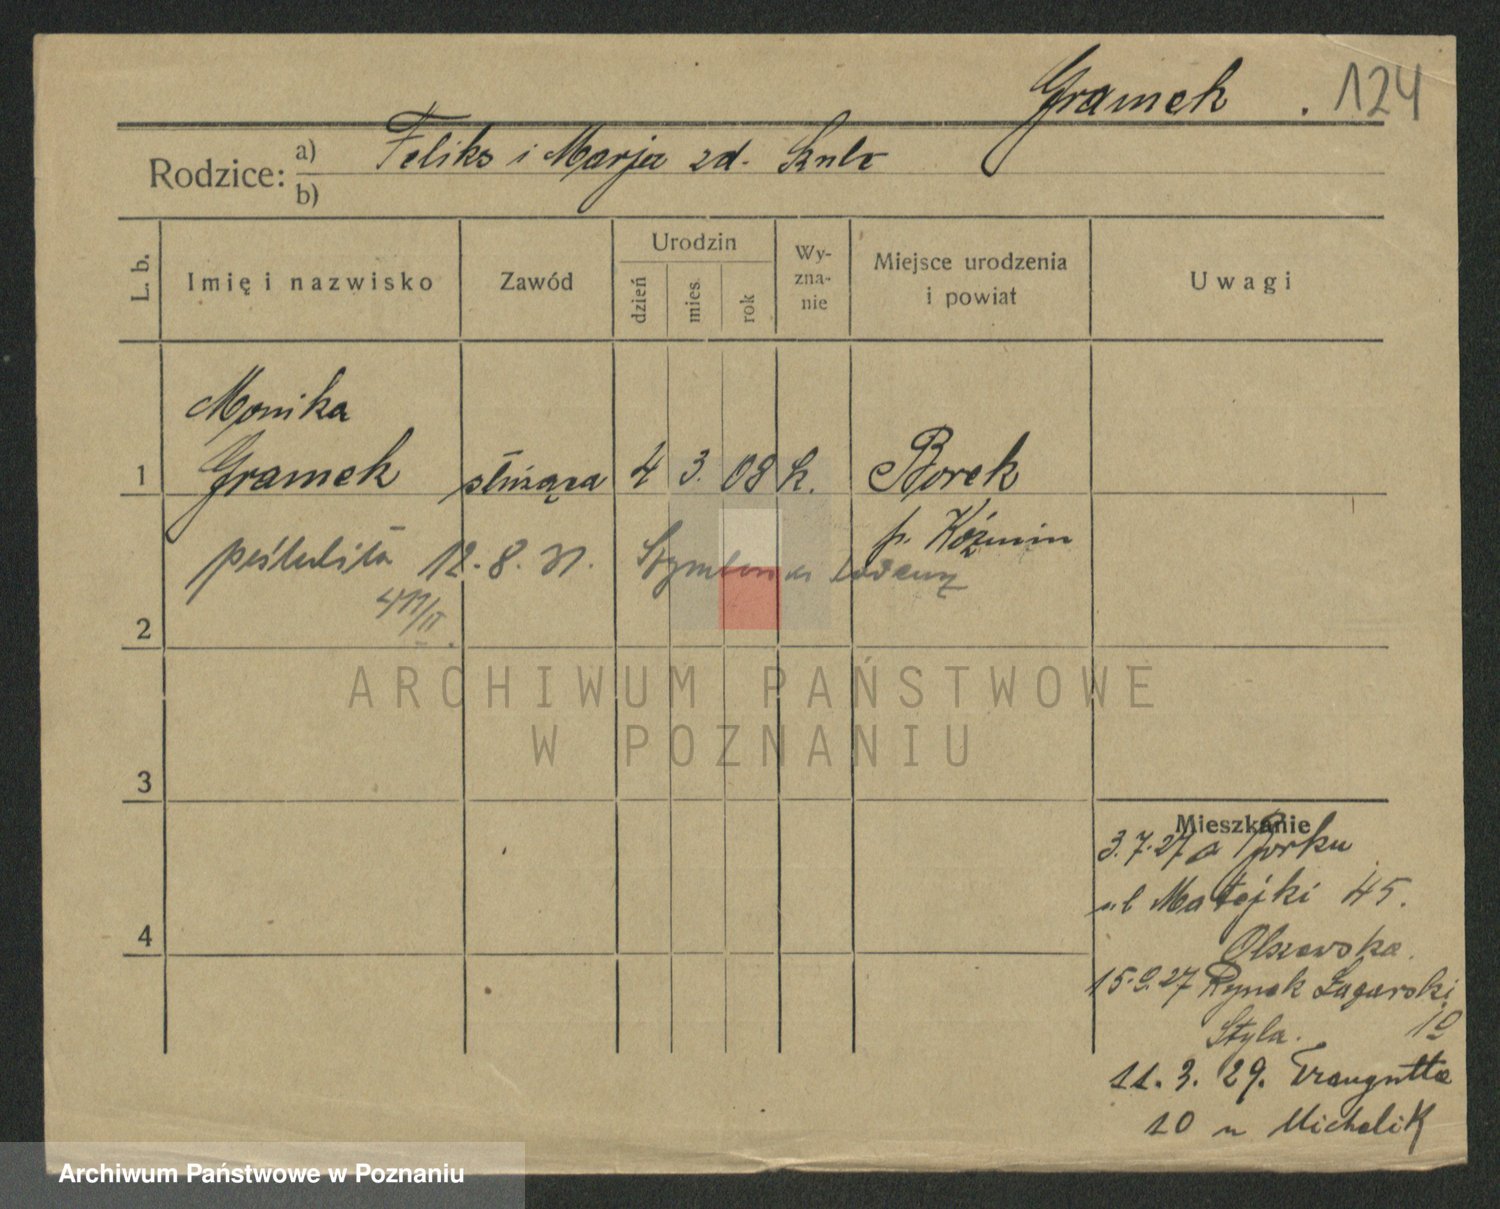 Gramek . 124
Rodzice: a) Feliks i Marja zd. Szulc
b)
L. b. Imię i nazwisko Zawód Urodzin dzień mies. rok Wy-zna-nie Miejsce urodzenia i powiat Uwagi
Monika
1 Gramek służąca 4 3. 08 k. Borek
p. Koźmin
12. 8. 31.
2
ARCHIWUM PAŃSTWOWE
W POZNANIU
3
Mieszkanie
3.7.27 z Borku
ul Matejki 45.
4
Olszewska.
15.9.27 Rynek Łazarski
Styla. 10
11. 3. 29. Traugutta
10 u Michalik
Archiwum Państwowe w Poznaniu